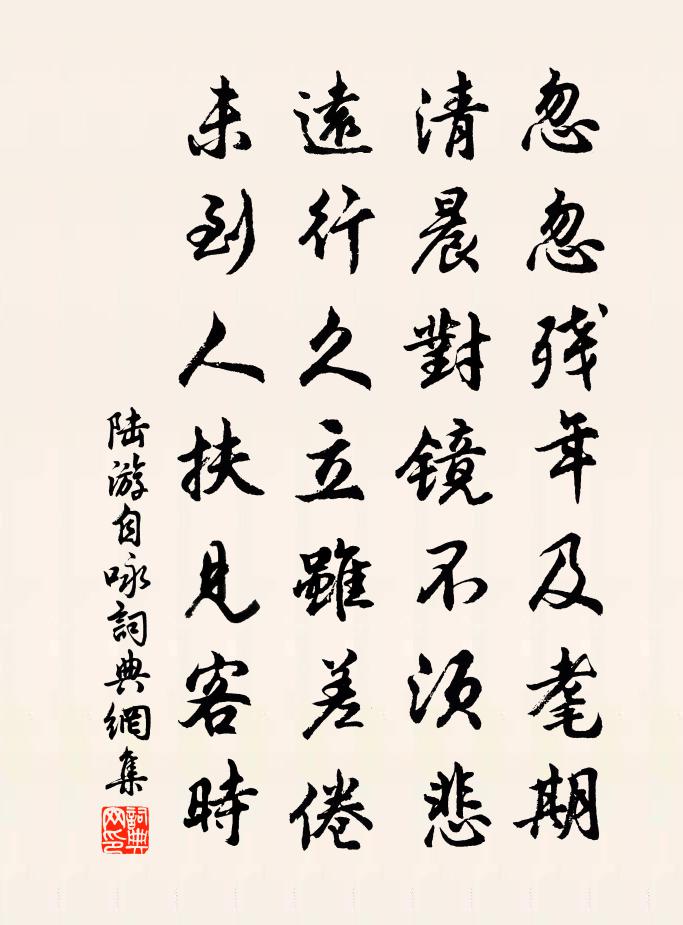 忽忽残年及耄期
清晨對镜不须悲
遠行久立雖差倦
未到人扶見客時
陆游自咏詞典網集
詞典網印